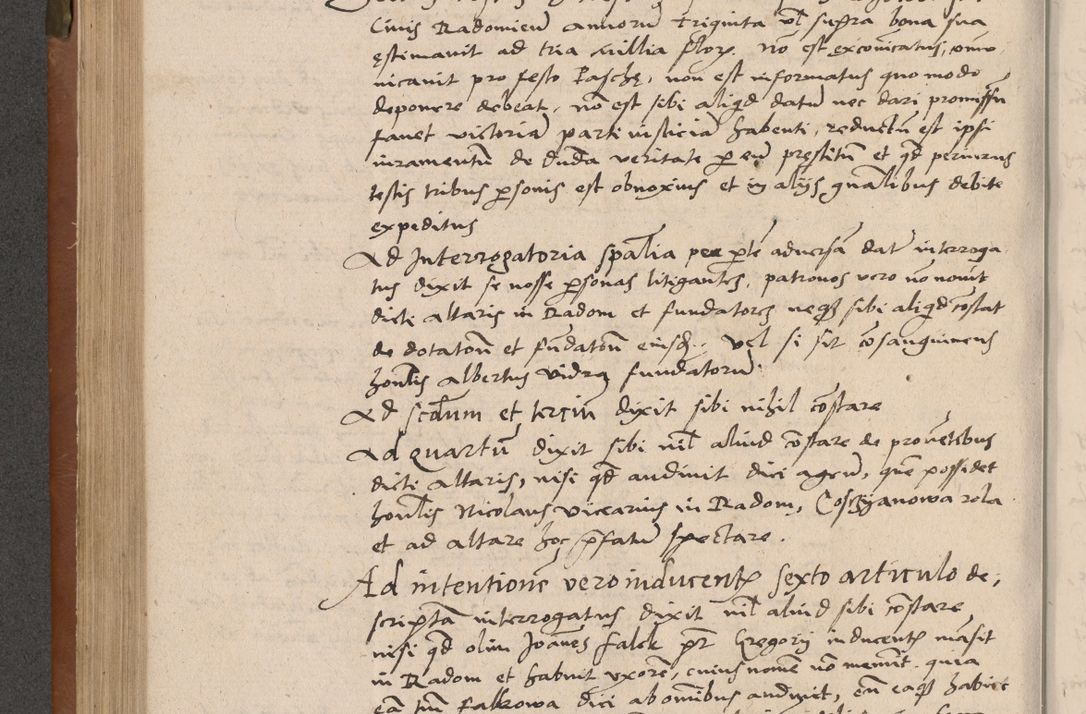 Civis Radomien̄ annorū triginta vl̄ supra bona sua
ęstimavit ad tria millia flor. nō est excōicatus, cōmu
nicavit pro festo Paschę, non est informatus quo modo
deponere debeat, nō est sibi aliqd datū nec dari promissū
favet victoriā parti iusticiā habenti, reductū est ipsi
iuramentū de dicēda veritate p eū pręstitū et qd periurus
testis tribus psonis est obnoxius et in aliis qualibus debite
expeditus
Ad Interrogatoria spālia per ptē adversā dat interroga
tus dixit se nosse psonas litigantes, patronos vero nō novit
dicti altaris in Radom et fundatores neq sibi aliqd cōstat
de dotatōn et fūdatōn eiusd. Vel si sit cōsanguineus
honlis Albertus Vidra fundatorū
Ad scdum et terciū dixit sibi nihil cōstare
Ad quartū dixit sibi nil aliud cōstare de provētibus
dicti altaris, nisi qd audivit dici agrū, quē possidet
honlis Nicolaus vicarius in Radom, Coszyanowa rola
et ad altare hoc pfatū spectare.
Ad intentionē vero inducentp sexto articulo de,
scriptā interrogatus dixit nil aliud sibi cōstare
nisi qd olim Joānes Falek pr Gregorii inducentp māsit
in Radom et habuit uxorē, cuius nomē nō meminit. quia
eā tm̄ Falkowa dici ab omībus audivit, cū eaq habuit